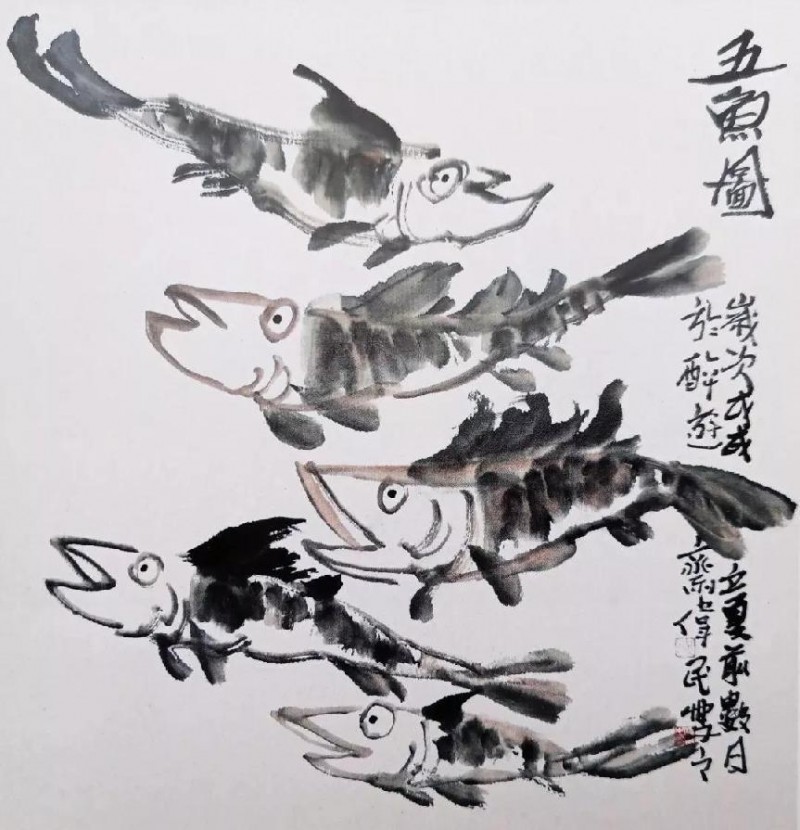 五魚圖
歲次戊戌立夏前數日
於醉遊
齋 偉民